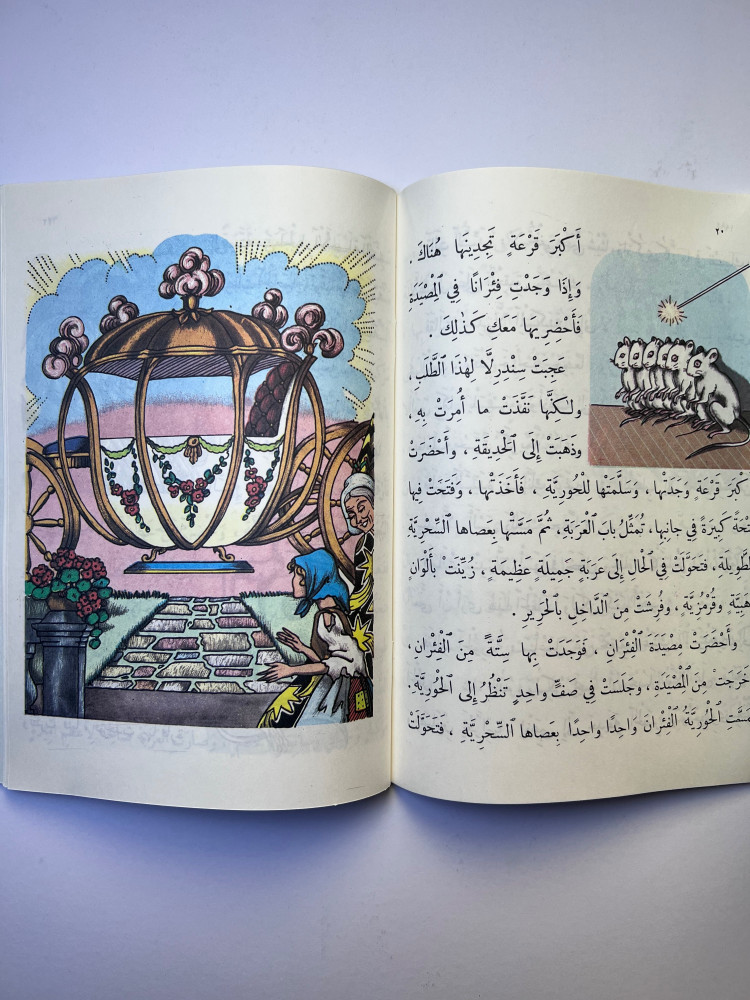 ٢٠
أَكْبَرَ قَرْعَةٍ تَجِدِينَهَا هُنَاكَ
وَإِذَا وَجَدْتِ فِئْرَانًا فِي الْمِصْيَدَةِ
فَأَحْضِرِيهَا مَعَكِ كَذٰلِكَ .
عَجِبَتْ سِنْدرِلَّا لِهٰذَا الطَّلَبِ ،
ولٰكِنَّهَا نَفَّذَتْ ما أُمِرَتْ بِهِ .
وذَهَبَتْ إلَى الْحَدِيقَةِ ، وأَحْضَرَتْ
كْبَرَ قَرْعَةٍ وَجَدَتْها ، وَسَلَّمَتْها لِلْحُورِيَّةِ ، فَأَخَذَتْها ، وَفَتَحَتْ فِيها
تْحَةً كَبِيرَةً في جانِبِها، تُمَثِّلُ بابَ الْعَرَبَةِ، ثُمَّ مَسَّتْها بِعَصاها السِّحْرِيَّةِ
لطَّوِيلَةِ، فَتَحَوَّلَتْ في الْحالِ إلَى عَرَبَةٍ جَمِيلَةٍ عَظِيمَةٍ ، زُيِّنَتْ بِأَلْوانٍ
هَبِيَّةٍ وقُرْمُزِيَّةٍ ، وفُرِشَتْ مِنَ الدَّاخِلِ بالْحَرِيرِ .
وأَحْضَرَتْ مِصْيَدَةَ الْفِئْرانِ ، فَوَجَدَتْ بِها سِتَّةً مِنَ الْفِئْرانِ ،
خَرَجَتْ مِنَ الْمِصْيَدَةِ ، وجَلَسَتْ فِي صَفٍّ واحِدٍ تَنْظُرُ إلَى الْحُورِيَّةِ.
مَسَّتِ الْحُورِيَّةُ الْفِئْرانَ واحِدًا واحِدًا بِعَصاها السِّحْرِيَّةِ ، فَتَحَوَّلَتْ